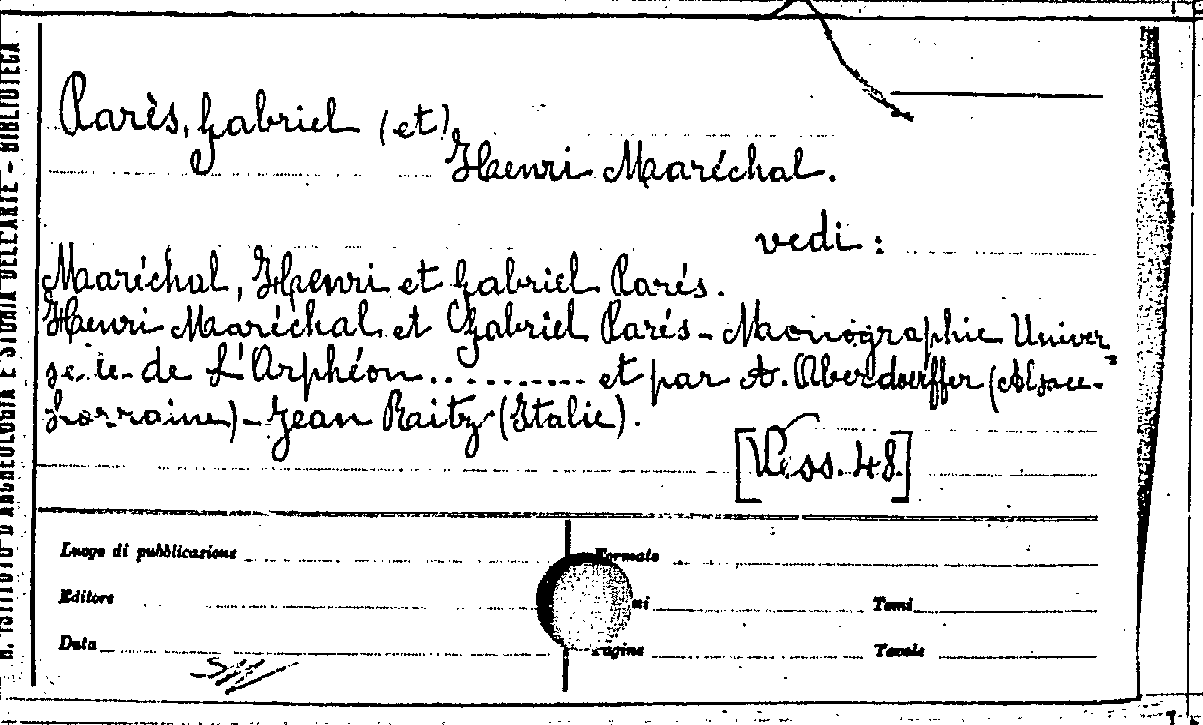 R. ISTITUTO D'ARCHEOLOGIA E STORIA DELL'ARTE - BIBLIOTECA
Parès, Gabriel (et)
Henri Maréchal.
vedi:
Maréchal, Henri et Gabriel Parés.
Henri Maréchal et Gabriel Parés - Monographie Univer
selle de L'Orphéon.......... et par A. Oberdoerffer (Alsace-
Lorraine) - Jean Raitz (Italie).
[Vess. 48]
Luogo di pubblicazione
Formato
Editore
Tomi
Data
Pagine
Tavole